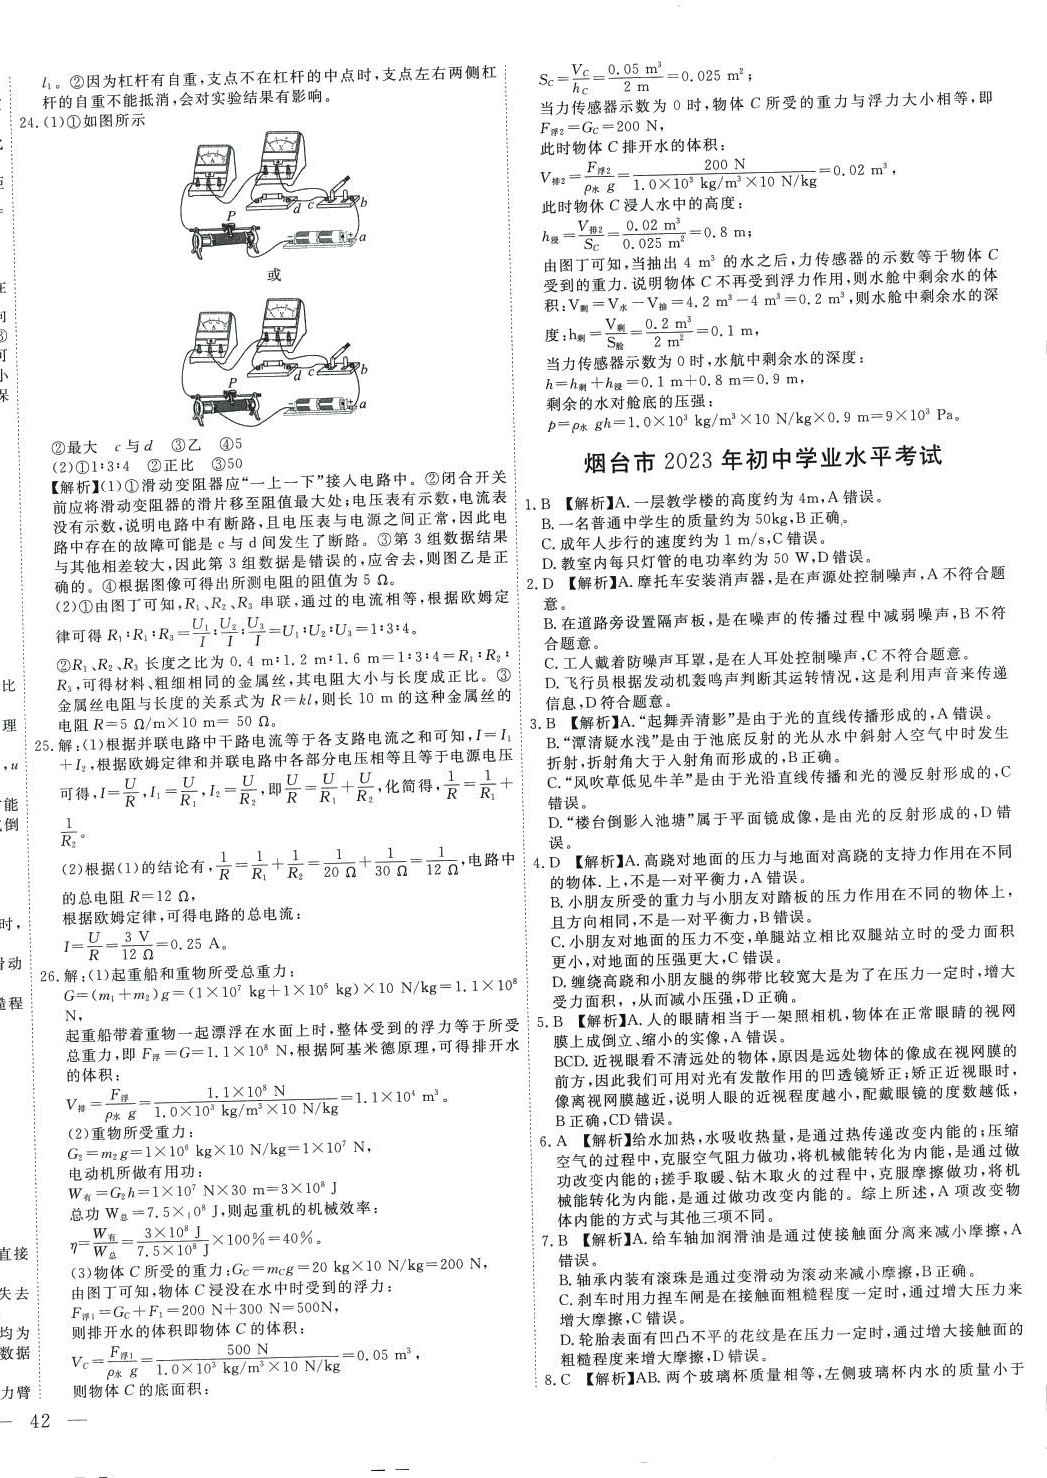 l₁。②因为杠杆有自重,支点不在杠杆的中点时,支点左右两侧杠
杆的自重不能抵消,会对实验结果有影响。
24.(1)①如图所示
P
d
c
b
a
或
P
d
c
b
a
②最大 c与d ③乙 ④5
(2)①1∶3∶4 ②正比 ③50
【解析】(1)①滑动变阻器应“一上一下”接人电路中。②闭合开关
前应将滑动变阻器的滑片移至阻值最大处;电压表有示数,电流表
没有示数,说明电路中有断路,且电压表与电源之间正常,因此电
路中存在的故障可能是c与d间发生了断路。③第3组数据结果
与其他相差较大,因此第3组数据是错误的,应舍去,则图乙是正
确的。④根据图像可得出所测电阻的阻值为5 Ω。
(2)①由图丁可知,R₁、R₂、R₃ 串联,通过的电流相等,根据欧姆定
律可得 R₁∶R₁∶R₃=U₁/I∶U₂/I∶U₃/I=U₁∶U₂∶U₃=1∶3∶4。
②R₁、R₂、R₃ 长度之比为 0.4 m∶1.2 m∶1.6 m=1∶3∶4=R₁∶R₂∶
R₃,可得材料、粗细相同的金属丝,其电阻大小与长度成正比。③
金属丝电阻与长度的关系式为 R=kl,则长 10 m 的这种金属丝的
电阻 R=5 Ω/m×10 m= 50 Ω。
25.解:(1)根据并联电路中干路电流等于各支路电流之和可知,I=I₁
+I₂,根据欧姆定律和并联电路中各部分电压相等且等于电源电压
可得,I=U/R,I₁=U/R₁,I₂=U/R₂,即U/R=U/R₁+U/R₂,化简得,1/R=1/R₁+
1/R₂。
(2)根据(1)的结论有,1/R=1/R₁+1/R₂=1/20 Ω+1/30 Ω=1/12 Ω,电路中
的总电阻 R=12 Ω,
根据欧姆定律,可得电路的总电流:
I=U/R=3 V/12 Ω=0.25 A。
26.解:(1)起重船和重物所受总重力:
G=(m₁+m₂)g=(1×10⁷ kg+1×10⁶ kg)×10 N/kg=1.1×10⁸
N,
起重船带着重物一起漂浮在水面上时,整体受到的浮力等于所受
总重力,即 F浮=G=1.1×10⁸ N,根据阿基米德原理,可得排开水
的体积:
V排=F浮/ρ水 g=1.1×10⁸ N/1.0×10³ kg/m³×10 N/kg=1.1×10⁴ m³。
(2)重物所受重力:
G₂=m₂g=1×10⁶ kg×10 N/kg=1×10⁷ N,
电动机所做有用功:
W有=G₂h=1×10⁷ N×30 m=3×10⁸ J
总功 W总=7.5×10⁸ J,则起重机的机械效率:
η=W有/W总=3×10⁸ J/7.5×10⁸ J×100%=40%。
(3)物体 C 所受的重力:GC=mCg=20 kg×10 N/kg=200 N,
由图丁可知,物体 C 浸没在水中时受到的浮力:
F浮₁=GC+F₁=200 N+300 N=500N,
则排开水的体积即物体 C 的体积:
VC=F浮1/ρ水 g=500 N/1.0×10³ kg/m³×10 N/kg=0.05 m³,
则物体 C 的底面积:
SC=VC/hC=0.05 m³/2 m=0.025 m²;
当力传感器示数为 0 时,物体 C 所受的重力与浮力大小相等,即
F浮2=GC=200 N,
此时物体 C 排开水的体积:
V排2=F浮2/ρ水 g=200 N/1.0×10³ kg/m³×10 N/kg=0.02 m³,
此时物休 C 浸人水中的高度:
h浸=V排2/SC=0.02 m³/0.025 m²=0.8 m;
由图丁可知,当抽出 4 m³ 的水之后,力传感器的示数等于物体 C
受到的重力.说明物体 C 不再受到浮力作用,则水舱中剩余水的体
积:V剩=V水-V抽=4.2 m³-4 m³=0.2 m³,则水舱中剩余水的深
度:h剩=V剩/S舱=0.2 m³/2 m²=0.1 m,
当力传感器示数为 0 时,水航中剩余水的深度:
h=h剩+h浸=0.1 m+0.8 m=0.9 m,
剩余的水对舱底的压强:
p=ρ水 gh=1.0×10³ kg/m³×10 N/kg×0.9 m=9×10³ Pa。
烟台市 2023 年初中学业水平考试
1. B 【解析】A. 一层教学楼的高度约为 4m,A 错误。
B. 一名普通中学生的质量约为 50kg,B 正确。
C. 成年人步行的速度约为 1 m/s,C 错误。
D. 教室内每只灯管的电功率约为 50 W,D 错误。
2. D 【解析】A. 摩托车安装消声器,是在声源处控制噪声,A 不符合题
意。
B. 在道路旁设置隔声板,是在噪声的传播过程中减弱噪声,B 不符
合题意。
C. 工人戴着防噪声耳罩,是在人耳处控制噪声,C 不符合题意。
D. 飞行员根据发动机轰鸣声判断其运转情况,这是利用声音来传递
信息,D 符合题意。
3. B 【解析】A.“起舞弄清影”是由于光的直线传播形成的,A 错误。
B.“潭清疑水浅”是由于池底反射的光从水中斜射人空气中时发生
折射,折射角大于入射角而形成的,B 正确。
C.“风吹草低见牛羊”是由于光沿直线传播和光的漫反射形成的,C
错误。
D.“楼台倒影入池塘”属于平面镜成像,是由光的反射形成的,D 错
误。
4. D 【解析】A. 高跷对地面的压力与地面对高跷的支持力作用在不同
的物体.上,不是一对平衡力,A 错误。
B. 小朋友所受的重力与小朋友对踏板的压力作用在不同的物体上,
且方向相同,不是一对平衡力,B 错误。
C. 小朋友对地面的压力不变,单腿站立相比双腿站立时的受力面积
更小,对地面的压强更大,C 错误。
D. 缠绕高跷和小朋友腿的绑带比较宽大是为了在压力一定时,增大
受力面积,,从而减小压强,D 正确。
5. B 【解析】A. 人的眼睛相当于一架照相机,物体在正常眼睛的视网
膜上成倒立、缩小的实像,A 错误。
BCD. 近视眼看不清远处的物体,原因是远处物体的像成在视网膜的
前方,因此我们可用对光有发散作用的凹透镜矫正;矫正近视眼时,
像离视网膜越近,说明人眼的近视程度越小,配戴眼镜的度数越低,
B 正确,CD 错误。
6. A 【解析】给水加热,水吸收热量,是通过热传递改变内能的;压缩
空气的过程中,克服空气阻力做功,将机械能转化为内能,是通过做
功改变内能的;搓手取暖、钻木取火的过程中,克服摩擦做功,将机
械能转化为内能,是通过做功改变内能的。综上所述,A 项改变物
体内能的方式与其他三项不同。
7. B 【解析】A. 给车轴加润滑油是通过使接触面分离来减小摩擦,A
错误。
B. 轴承内装有滚珠是通过变滑动为滚动来减小摩擦,B 正确。
C. 刹车时用力捏车闸是在接触面粗糙程度一定时,通过增大压力来
增大摩擦,C 错误。
D. 轮胎表面有凹凸不平的花纹是在压力一定时,通过增大接触面的
粗糙程度来增大摩擦,D 错误。
8. C 【解析】AB. 两个玻璃杯质量相等,左侧玻璃杯内水的质量小于
— 42 —